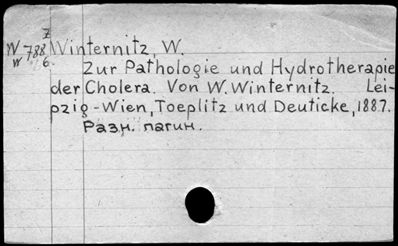 Z
W 788 Winternitz, W.
W 26.
Zur Pathologie und Hydrotherapie
der Cholera. Von W. Winternitz. Lei-
pzig-Wien, Toeplitz und Deuticke, 1887.
Разн. пагин.